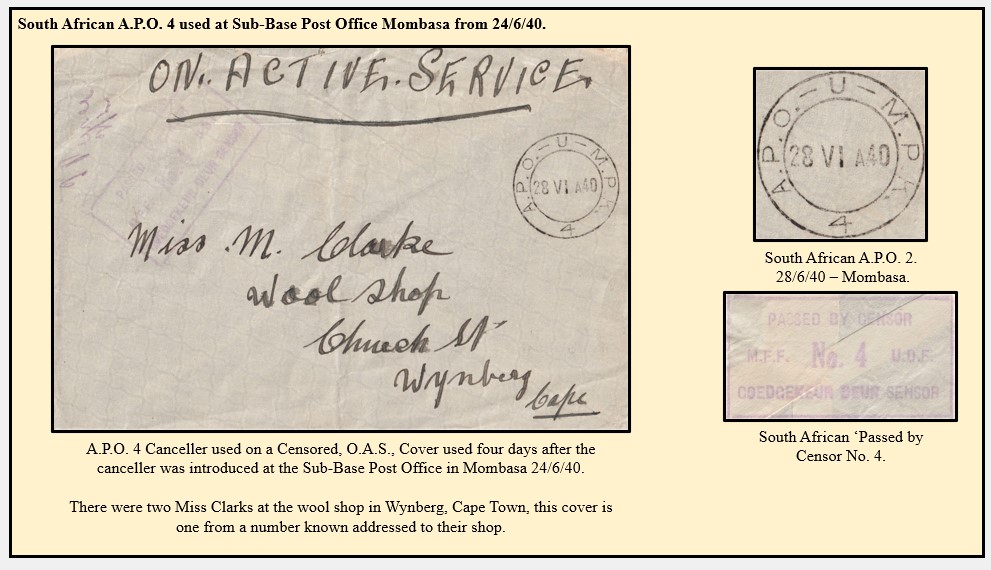 South African A.P.O. 4 used at Sub-Base Post Office Mombasa from 24/6/40.
ON. ACTIVE. SERVICE.
A.P.O. – U – M.P.K.
28 VI A40
4
Miss . M. Clarke
Wool Shop
Church St
Wynberg
Cape
A.P.O. 4 Canceller used on a Censored, O.A.S., Cover used four days after the
canceller was introduced at the Sub-Base Post Office in Mombasa 24/6/40.
There were two Miss Clarks at the wool shop in Wynberg, Cape Town, this cover is
one from a number known addressed to their shop.
A.P.O. – U – M.P.K.
28 VI A40
4
South African A.P.O. 2.
28/6/40 – Mombasa.
PASSED BY CENSOR
M.F.F. No. 4 U.D.F.
GOEDGEKEUR DEUR SENSOR
South African ‘Passed by
Censor No. 4.